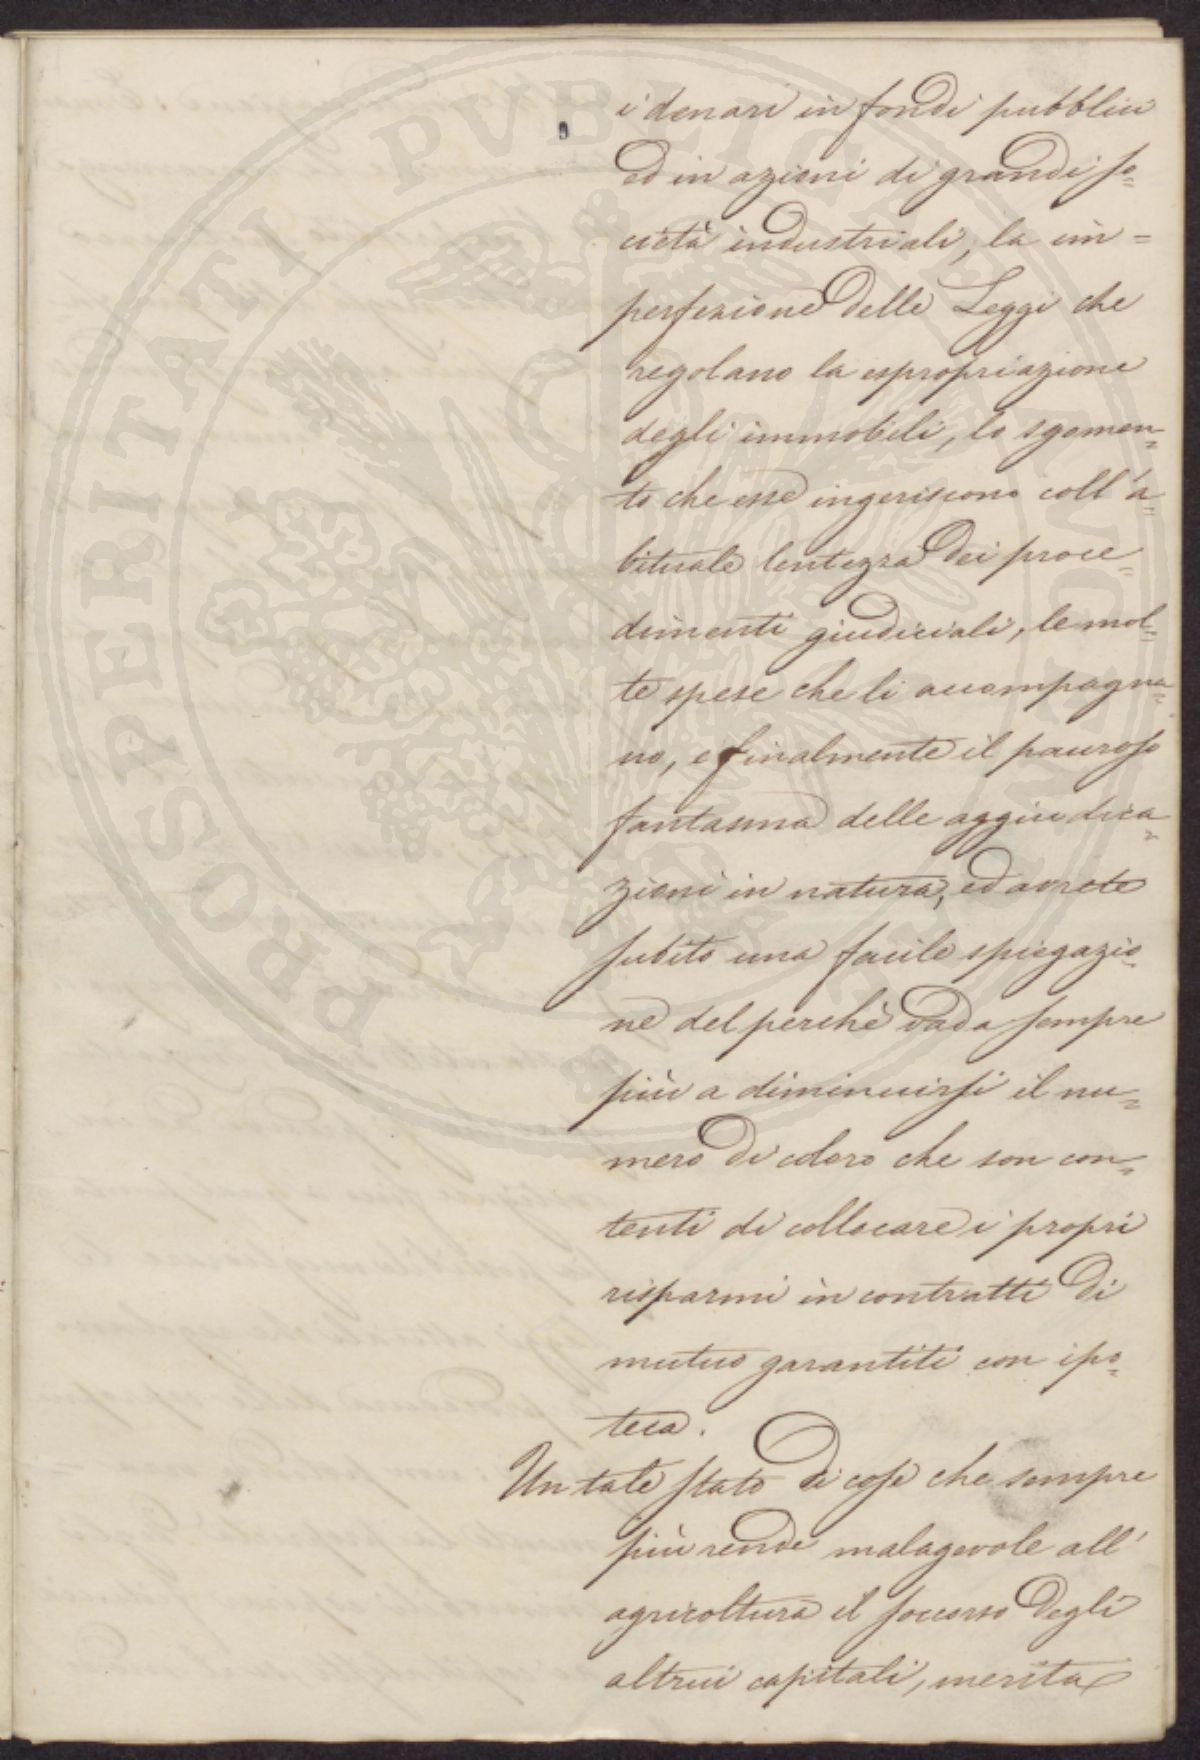 i denari in fondi pubblici
ed in azioni di grandi so=
cietà industriali, la im=
perfezione delle Leggi che
regolano la espropriazione
degli immobili, lo sgomen=
to che esse ingeriscono coll'a=
bituale lentezza dei proce=
dimenti giudiciali, le mol=
te spese che li accompagna=
no, e finalmente il pauroso
fantasma delle aggiudica=
zioni in natura, ed avrete
subito una facile spiegazio=
ne del perchè vada sempre
più a diminuirsi il nu=
mero di coloro che son con=
tenti di collocare i propri
risparmi in contratti di
mutuo garantiti con ipo=
teca.
Un tale stato di cose che sempre
più rende malagevole all'
agricoltura il soccorso degli
altrui capitali, merita
PROSPERITATI PUBLICAE